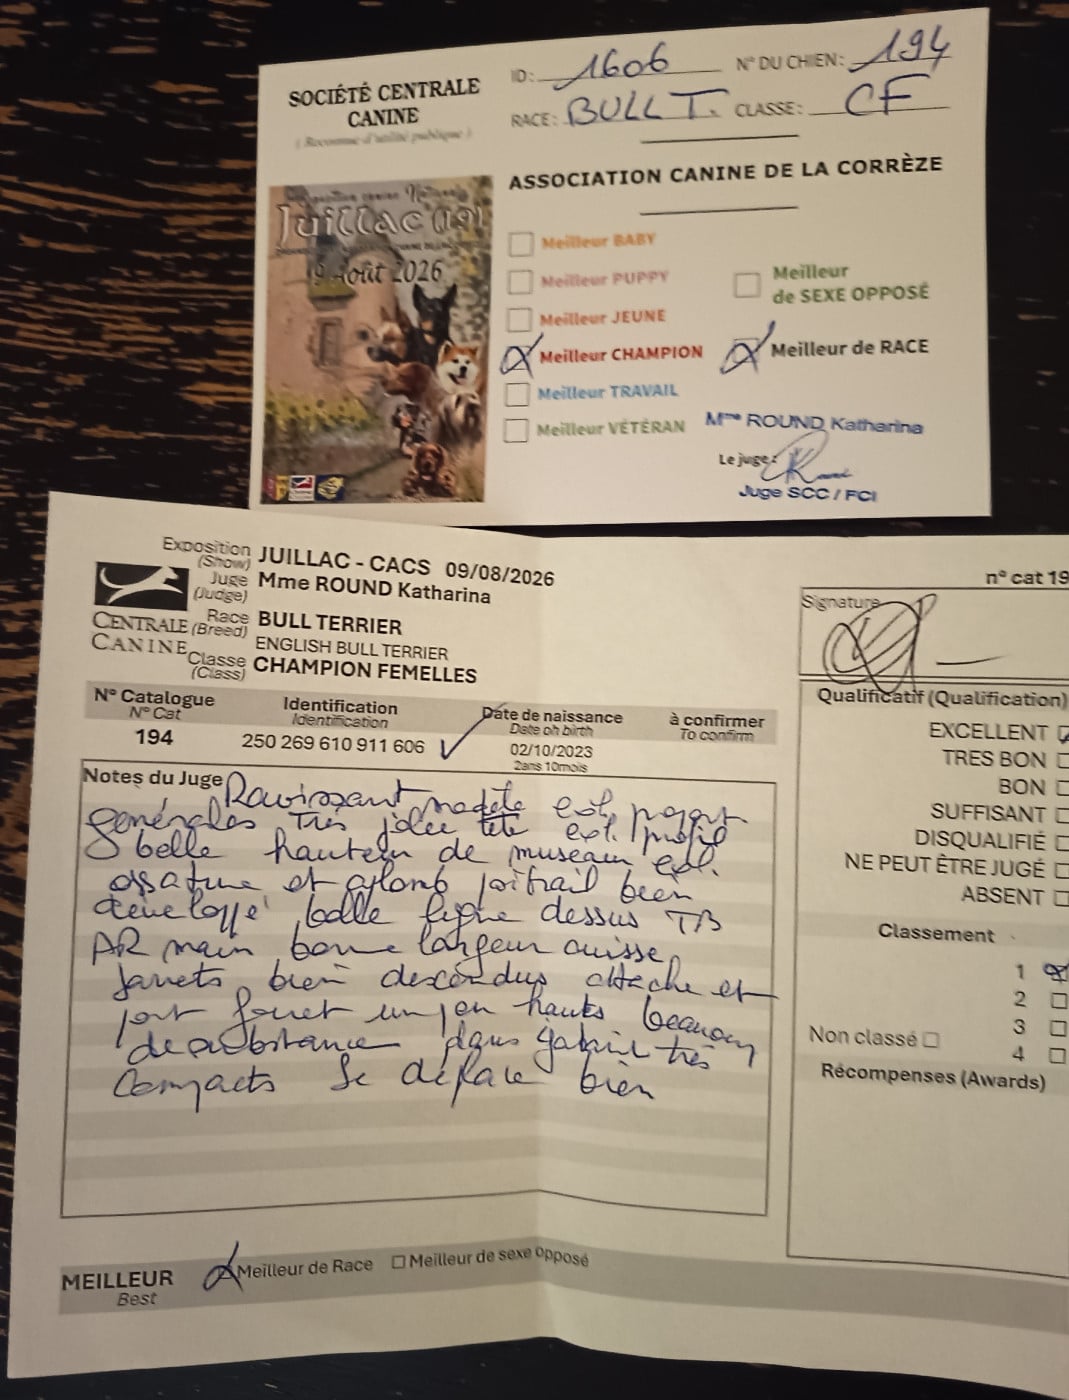 SOCIÉTÉ CENTRALE
CANINE
( Reconnue d'utilité publique )
ID: 1606 N° DU CHIEN: 194
RACE: BULL T. CLASSE: CF
ASSOCIATION CANINE DE LA CORRÈZE
Exposition canine Nationale
Juillac (19)
9 Août 2026
Meilleur BABY
Meilleur PUPPY
Meilleur JEUNE
Meilleur CHAMPION
Meilleur TRAVAIL
Meilleur VÉTÉRAN
Meilleur
de SEXE OPPOSÉ
Meilleur de RACE
Mme ROUND Katharina
Le juge:
Juge SCC / FCI
Exposition JUILLAC - CACS 09/08/2026
(Show)
Juge Mme ROUND Katharina
(Judge)
Race BULL TERRIER
(Breed) ENGLISH BULL TERRIER
CENTRALE
CANINE
Classe CHAMPION FEMELLES
(Class)
N° Catalogue Identification Date de naissance à confirmer
N° Cat Identification Date oh birth To confirm
194 250 269 610 911 606 02/10/2023
2ans 10mois
Notes du Juge Ravissant modèle exl. 
générales très jolie tête exl. profil
belle hauteur de museau exl.
ossature et aplomb poitrail bien
développé belle ligne dessus TB
AR main bonne largeur cuisse
jarrets bien descendus attache et
port fouet un peu hauts beaucoup
de substance dans gabarit très
compacts Se déplace bien
n° cat 19
Signature
Qualificatif (Qualification)
EXCELLENT
TRES BON
BON
SUFFISANT
DISQUALIFIÉ
NE PEUT ÊTRE JUGÉ
ABSENT
Classement
1
2
3
Non classé
4
Récompenses (Awards)
MEILLEUR Meilleur de Race Meilleur de sexe opposé
Best